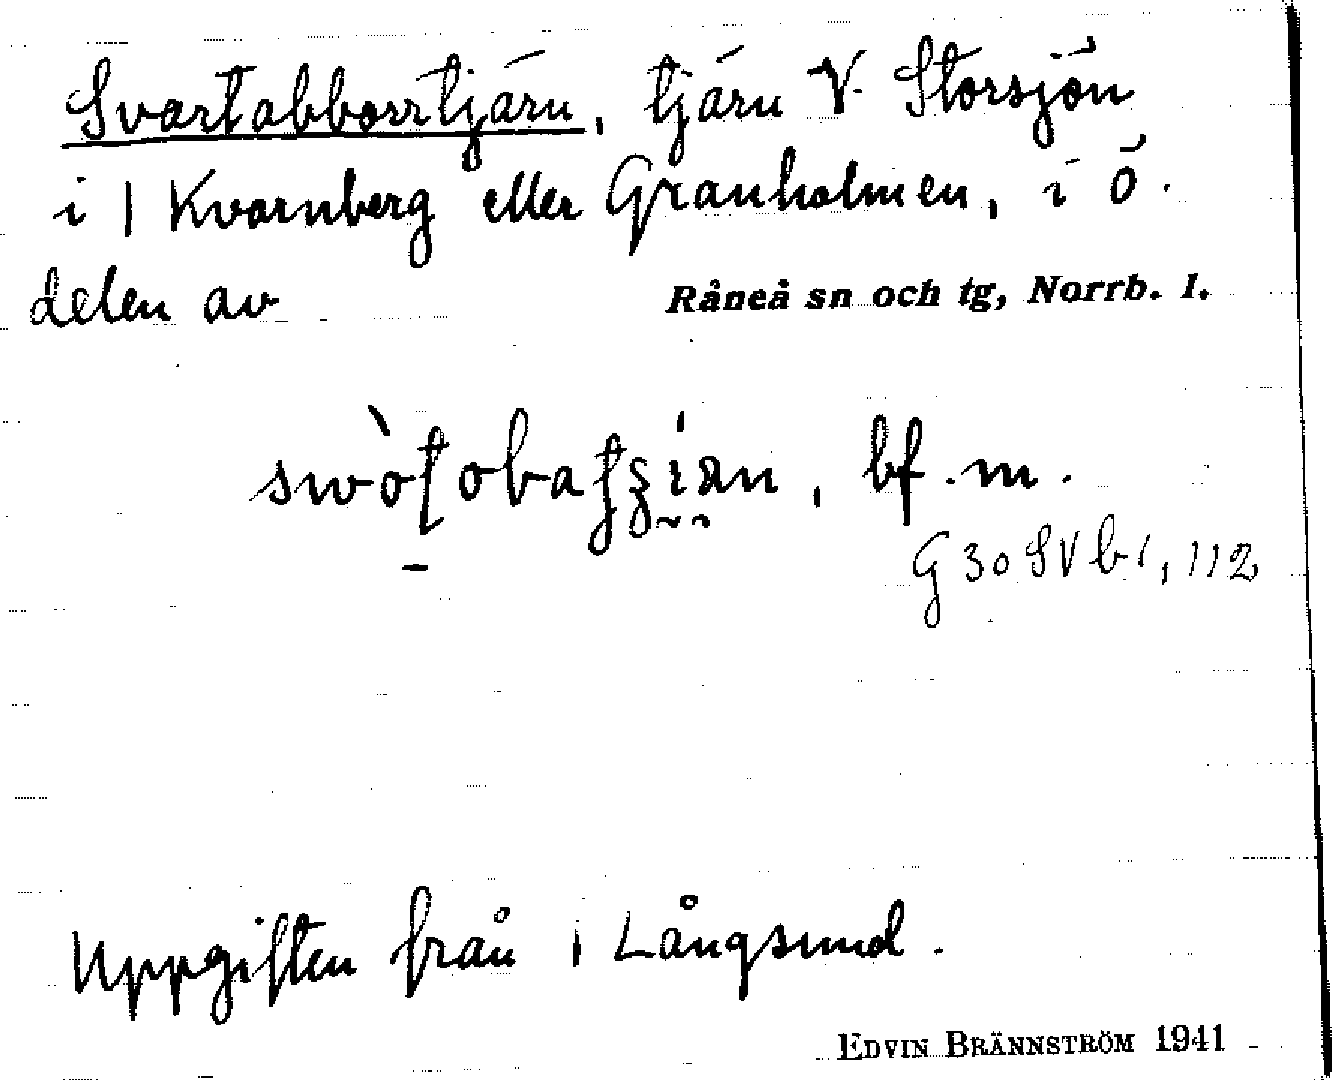 Svartabborrtjärn, tjärn V. Storsjön
i | Kvarnberg eller Granholmen, i ö.
delen av Råneå sn och tg, Norrb. l.
bf. m.
G 30 SV b1, 112
Uppgiften från | Långsund.
EDVIN BRÄNNSTRÖM 1941